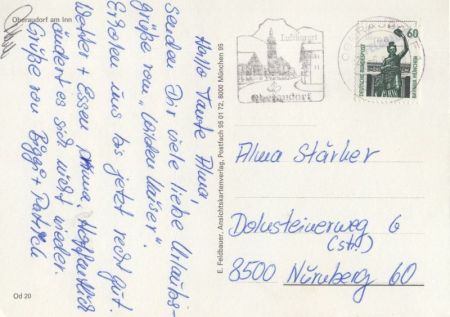 Oberaudorf am Inn
Hallo Tante Alma,
senden Dir viele liebe Urlaubs-
grüße vom "Wilden Kaiser".
Erholen uns bis jetzt recht gut.
Wetter + Essen prima. Hoffentlich
ändert es sich nicht wieder.
Grüße von Biggi + Patrick
Od 20
E. Feldbauer, Ansichtskartenverlag, Postfach 95 01 72, 8000 München 95
Luftkurort
Oberaudorf
OBERAUDORF
60
DEUTSCHE BUNDESPOST
BAVARIA MÜNCHEN
Alma Stärker
Dolusteinerweg 6
(str!)
8500 Nürnberg 60